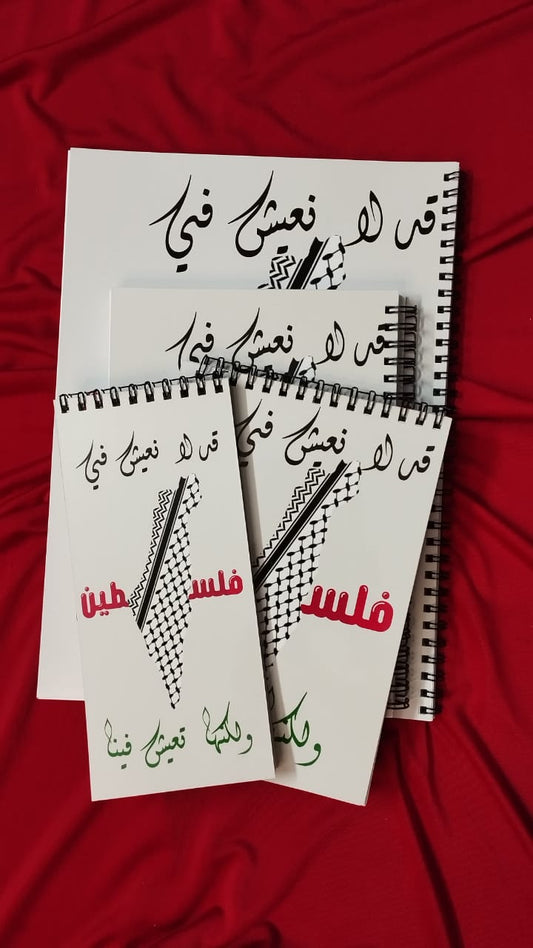 قد لا نعيش في
قد لا نعيش في
قد لا نعيش في
فلسطين
ولكنها تعيش فينا
قد لا نعيش في
فلسـ
ولكنها